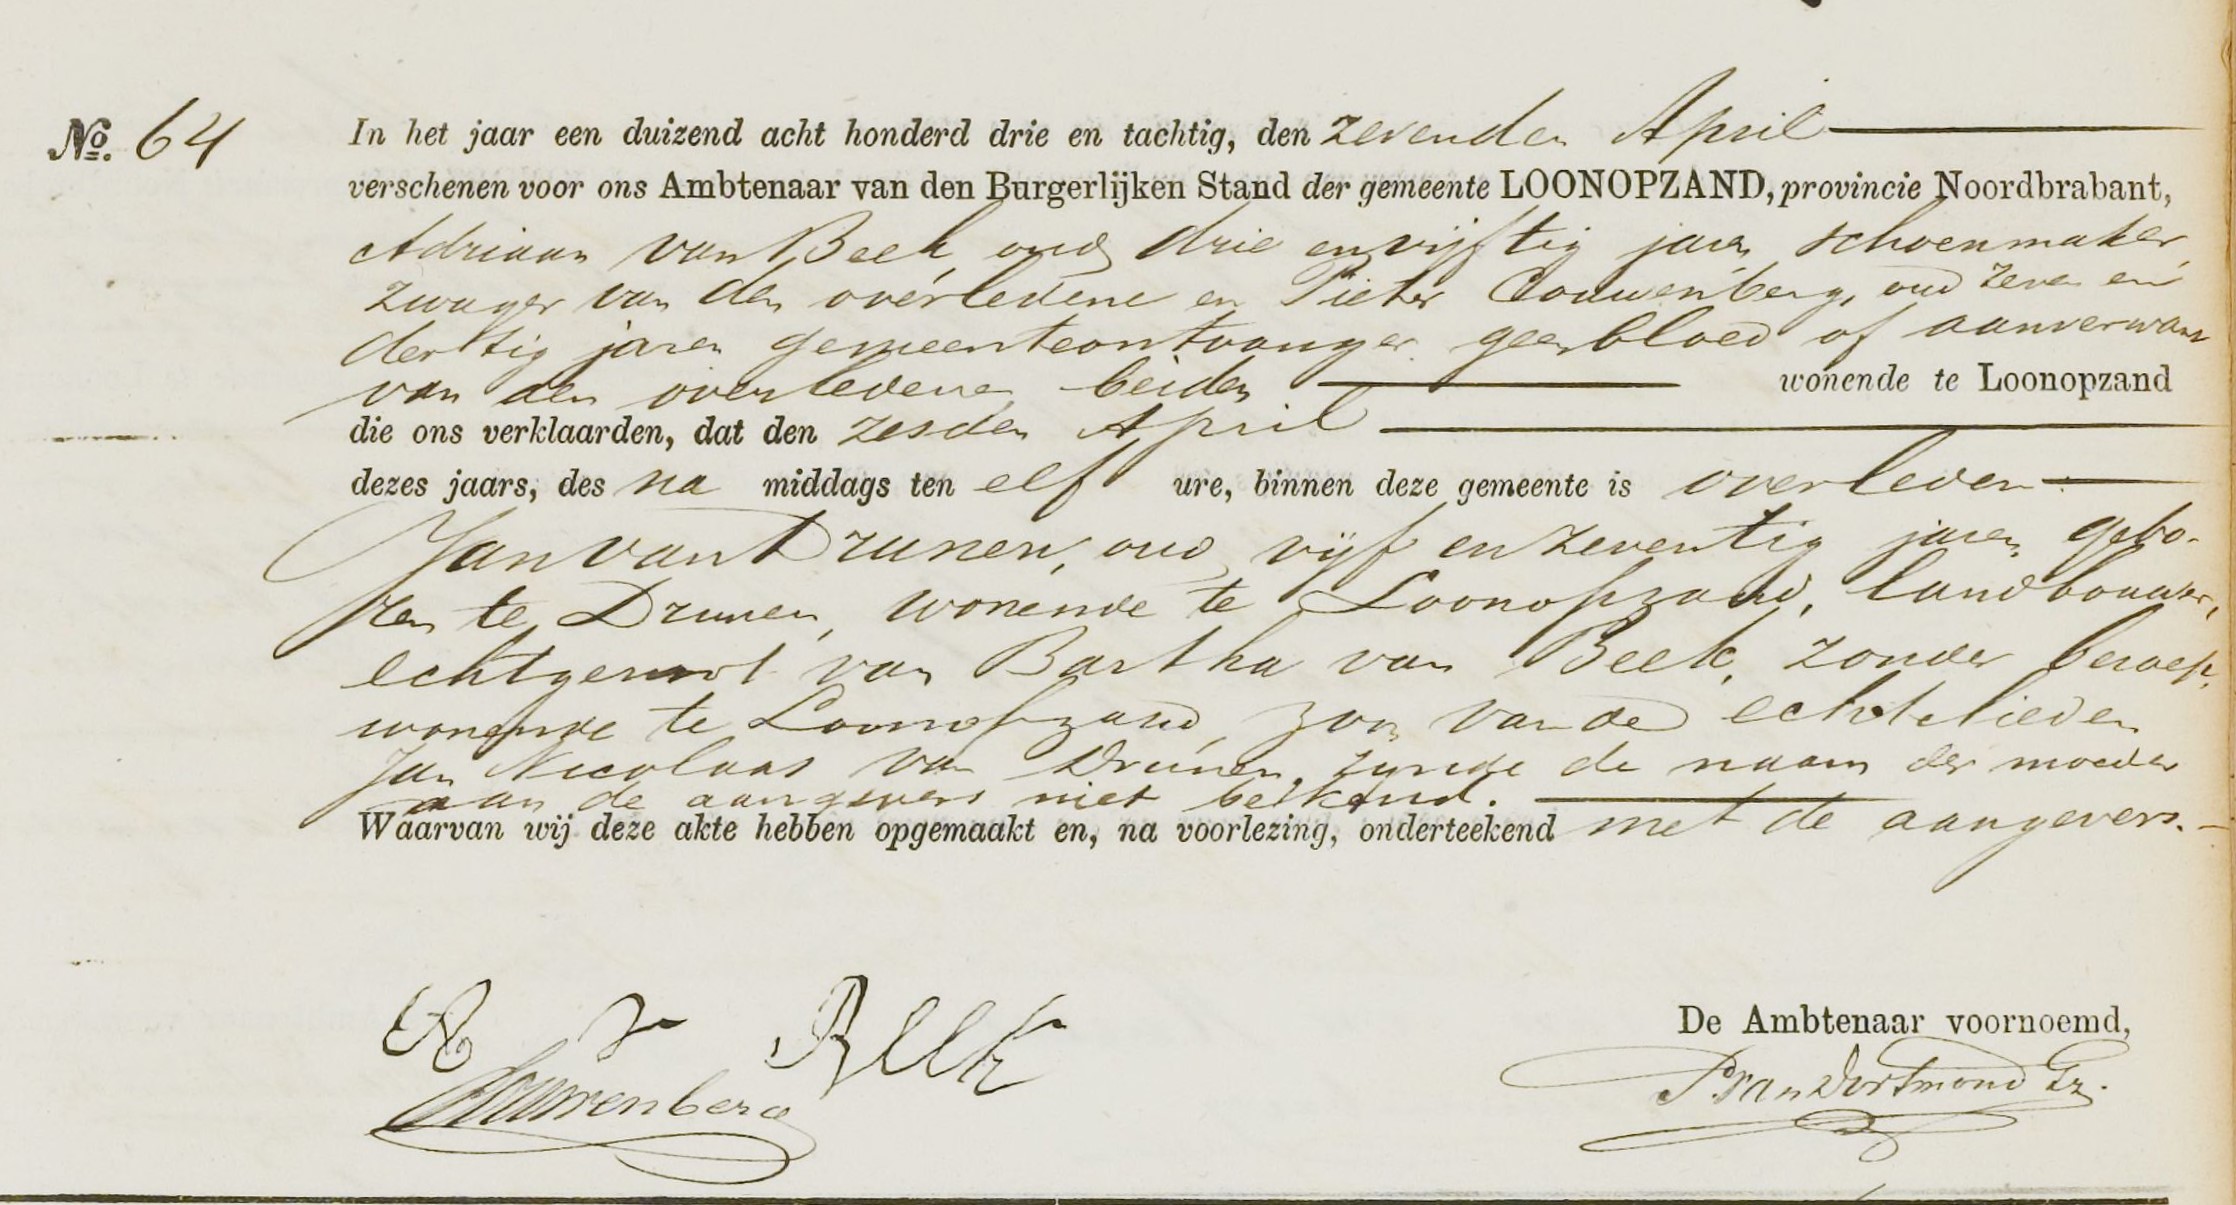 No. 64
In het jaar een duizend acht honderd drie en tachtig, den zevenden April
verschenen voor ons Ambtenaar van den Burgerlijken Stand der gemeente LOONOPZAND, provincie Noordbrabant,
Adriaan van Beek, oud drie en vijftig jaren, schoenmaker,
zwager van den overledene en Pieter Couwenberg, oud zeven en
dertig jaren gemeenteontvanger geen bloed of aanverwant
van den overledene, beiden wonende te Loonopzand
die ons verklaarden, dat den zesden April
dezes jaars, des na middags ten elf ure, binnen deze gemeente is overleden
Jan van Drunen, oud vijf en zeventig jaren, gebo-
ren te Drunen, wonende te Loonopzand, landbouwer,
echtgenoot van Bartha van Beek, zonder beroep,
wonende te Loonopzand, zoon van de echtelieden
Jan Nicolaas van Drunen, zijnde de naam der moeder
aan de aangevers niet bekend.
Waarvan wij deze akte hebben opgemaakt en, na voorlezing, onderteekend met de aangevers.
A v Beek
Couwenberg
De Ambtenaar voornoemd,
P. van Dortmond Gz.